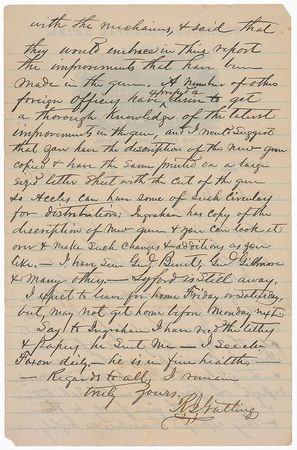 with the mechanism, & said that
they would embrace in their report
the improvements that have been
made in the gun. A number of other
foreign Officers have desired to get
a thorough knowledge of the latest
improvements in the gun, and I would suggest
that you have the discription of the new gun
copied & have the same printed on a large
sized letter sheet with the cut of the gun
so Accles can have some of such Circulars
for distribution: Ingraham has copy of the
discription of New gun & you can look it
over & make such changes & additions as you
like. — I have seen Genl Benét, Genl Gillmore
& many others — Lyford is still away.
I expect to leave for home Friday or Saturday
but, may not get home before Monday next.
Say to Ingraham I have recd the letters
& papers he sent me — I see Mr
Faxon daily — he is in fine health —
— Regards to all, I remain
truly yours,
R. J. Gatling